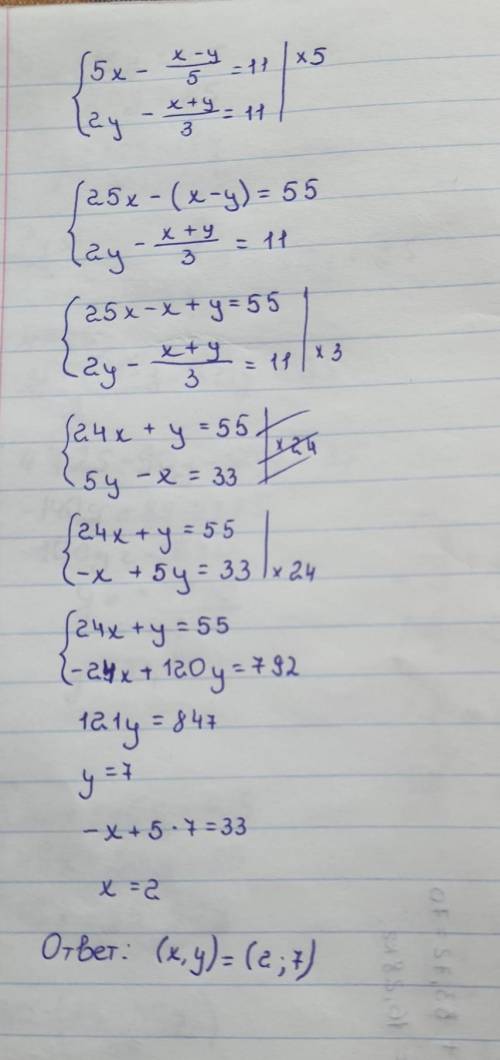 5x - (x-y)/5 = 11 | ×5
2y - (x+y)/3 = 11
25x - (x-y) = 55
2y - (x+y)/3 = 11
25x - x + y = 55
2y - (x+y)/3 = 11 | ×3
24x + y = 55 | ×24
5y - x = 33
24x + y = 55
-x + 5y = 33 | ×24
24x + y = 55
-24x + 120y = 792
121y = 847
y = 7
-x + 5·7 = 33
x = 2
Ответ: (x,y) = (2;7)